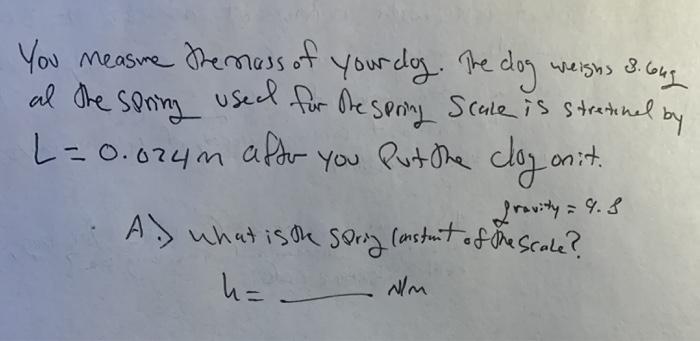 You measure the mass of your dog. The dog weighs 3.6kg
al the spring used for the spring scale is stretched by
L = 0.024m after you put the dog on it.
gravity = 9.8
A.) what is the spring constant of the scale?
k = ____ N/m